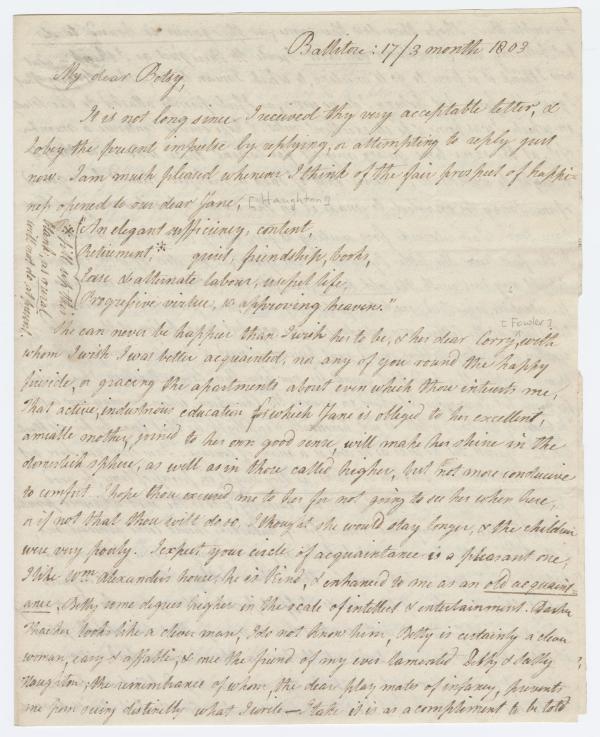 Ballitore: 17/3 month 1803
My dear Betsy,
It is not long since I received thy very acceptable letter, &
I obey the present impulse by replying, or attempting to reply just
now. I am much pleased whenever I think of the fair prospect of happi-
ness opened to our dear Jane, [Haughton?]
"An elegant sufficiency, content,
Retirement,* quiet, friendship, books,
Ease & alternate labour, useful life,
Progressive virtue, & approving heaven."
* fill up this
blank, as usual
will not do at present.
She can never be happier than I wish her to be, & her dear Corry, with
[Fowler?]
whom I wish I was better acquainted, nor any of you round the happy
fireside, or gracing the apartments about even which thou interests me,
That active, industrious education for which Jane is obliged to her excellent,
amiable mother, joined to her own good sense, will make her shine in the
domestick sphere, as well as in those called higher, but not more conducive
to comfort. I hope thou excused me to her for not going to see her when here,
or if not that thou wilt do so, I thought she would stay longer, & the children
were very poorly. I expect your circle of acquaintance is a pleasant one,
I like Wm. Alexander's house, he is kind, & enhanced to me as an old acquaint-
ance, Betty some degrees higher in the scale of intellect & entertainment.
Thacker looks like a clever man, I do not know him, Betty is certainly a clever
woman, easy & affable, & once the friend of my ever lamented & Sally
Haughton, the remembrance of whom, the dear play mates of infancy, prevents
me from seeing distinctly what I write — I take it is as a complement to be told